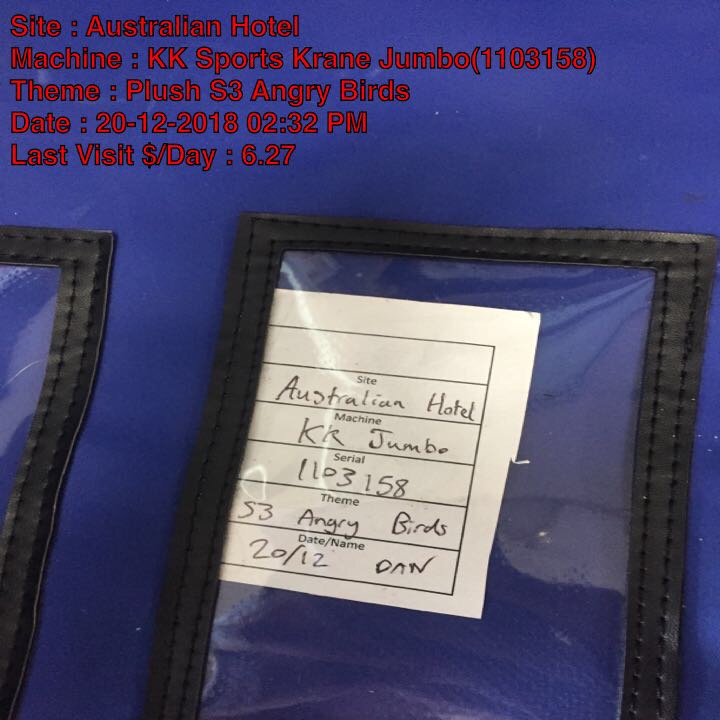 Site : Australian Hotel
Machine : KK Sports Krane Jumbo(1103158)
Theme : Plush S3 Angry Birds
Date : 20-12-2018 02:32 PM
Last Visit $/Day : 6.27
Site
Australian Hotel
Machine
KK Jumbo
Serial
1103158
Theme
S3 Angry Birds
Date/Name
20/12 DAN